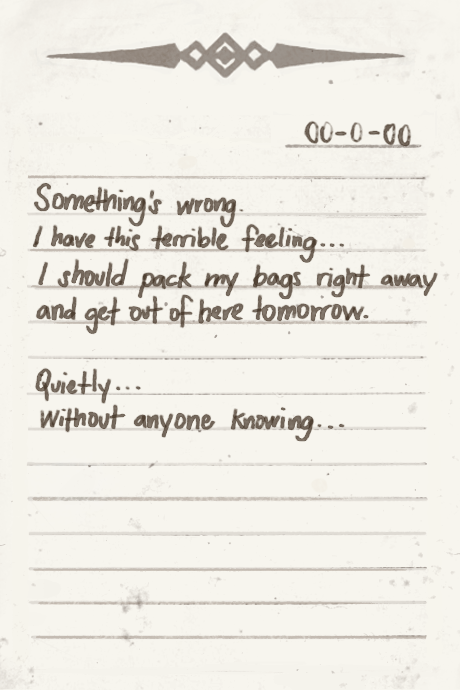 00-0-00
Something's wrong.
I have this terrible feeling...
I should pack my bags right away
and get out of here tomorrow.
Quietly...
Without anyone knowing...